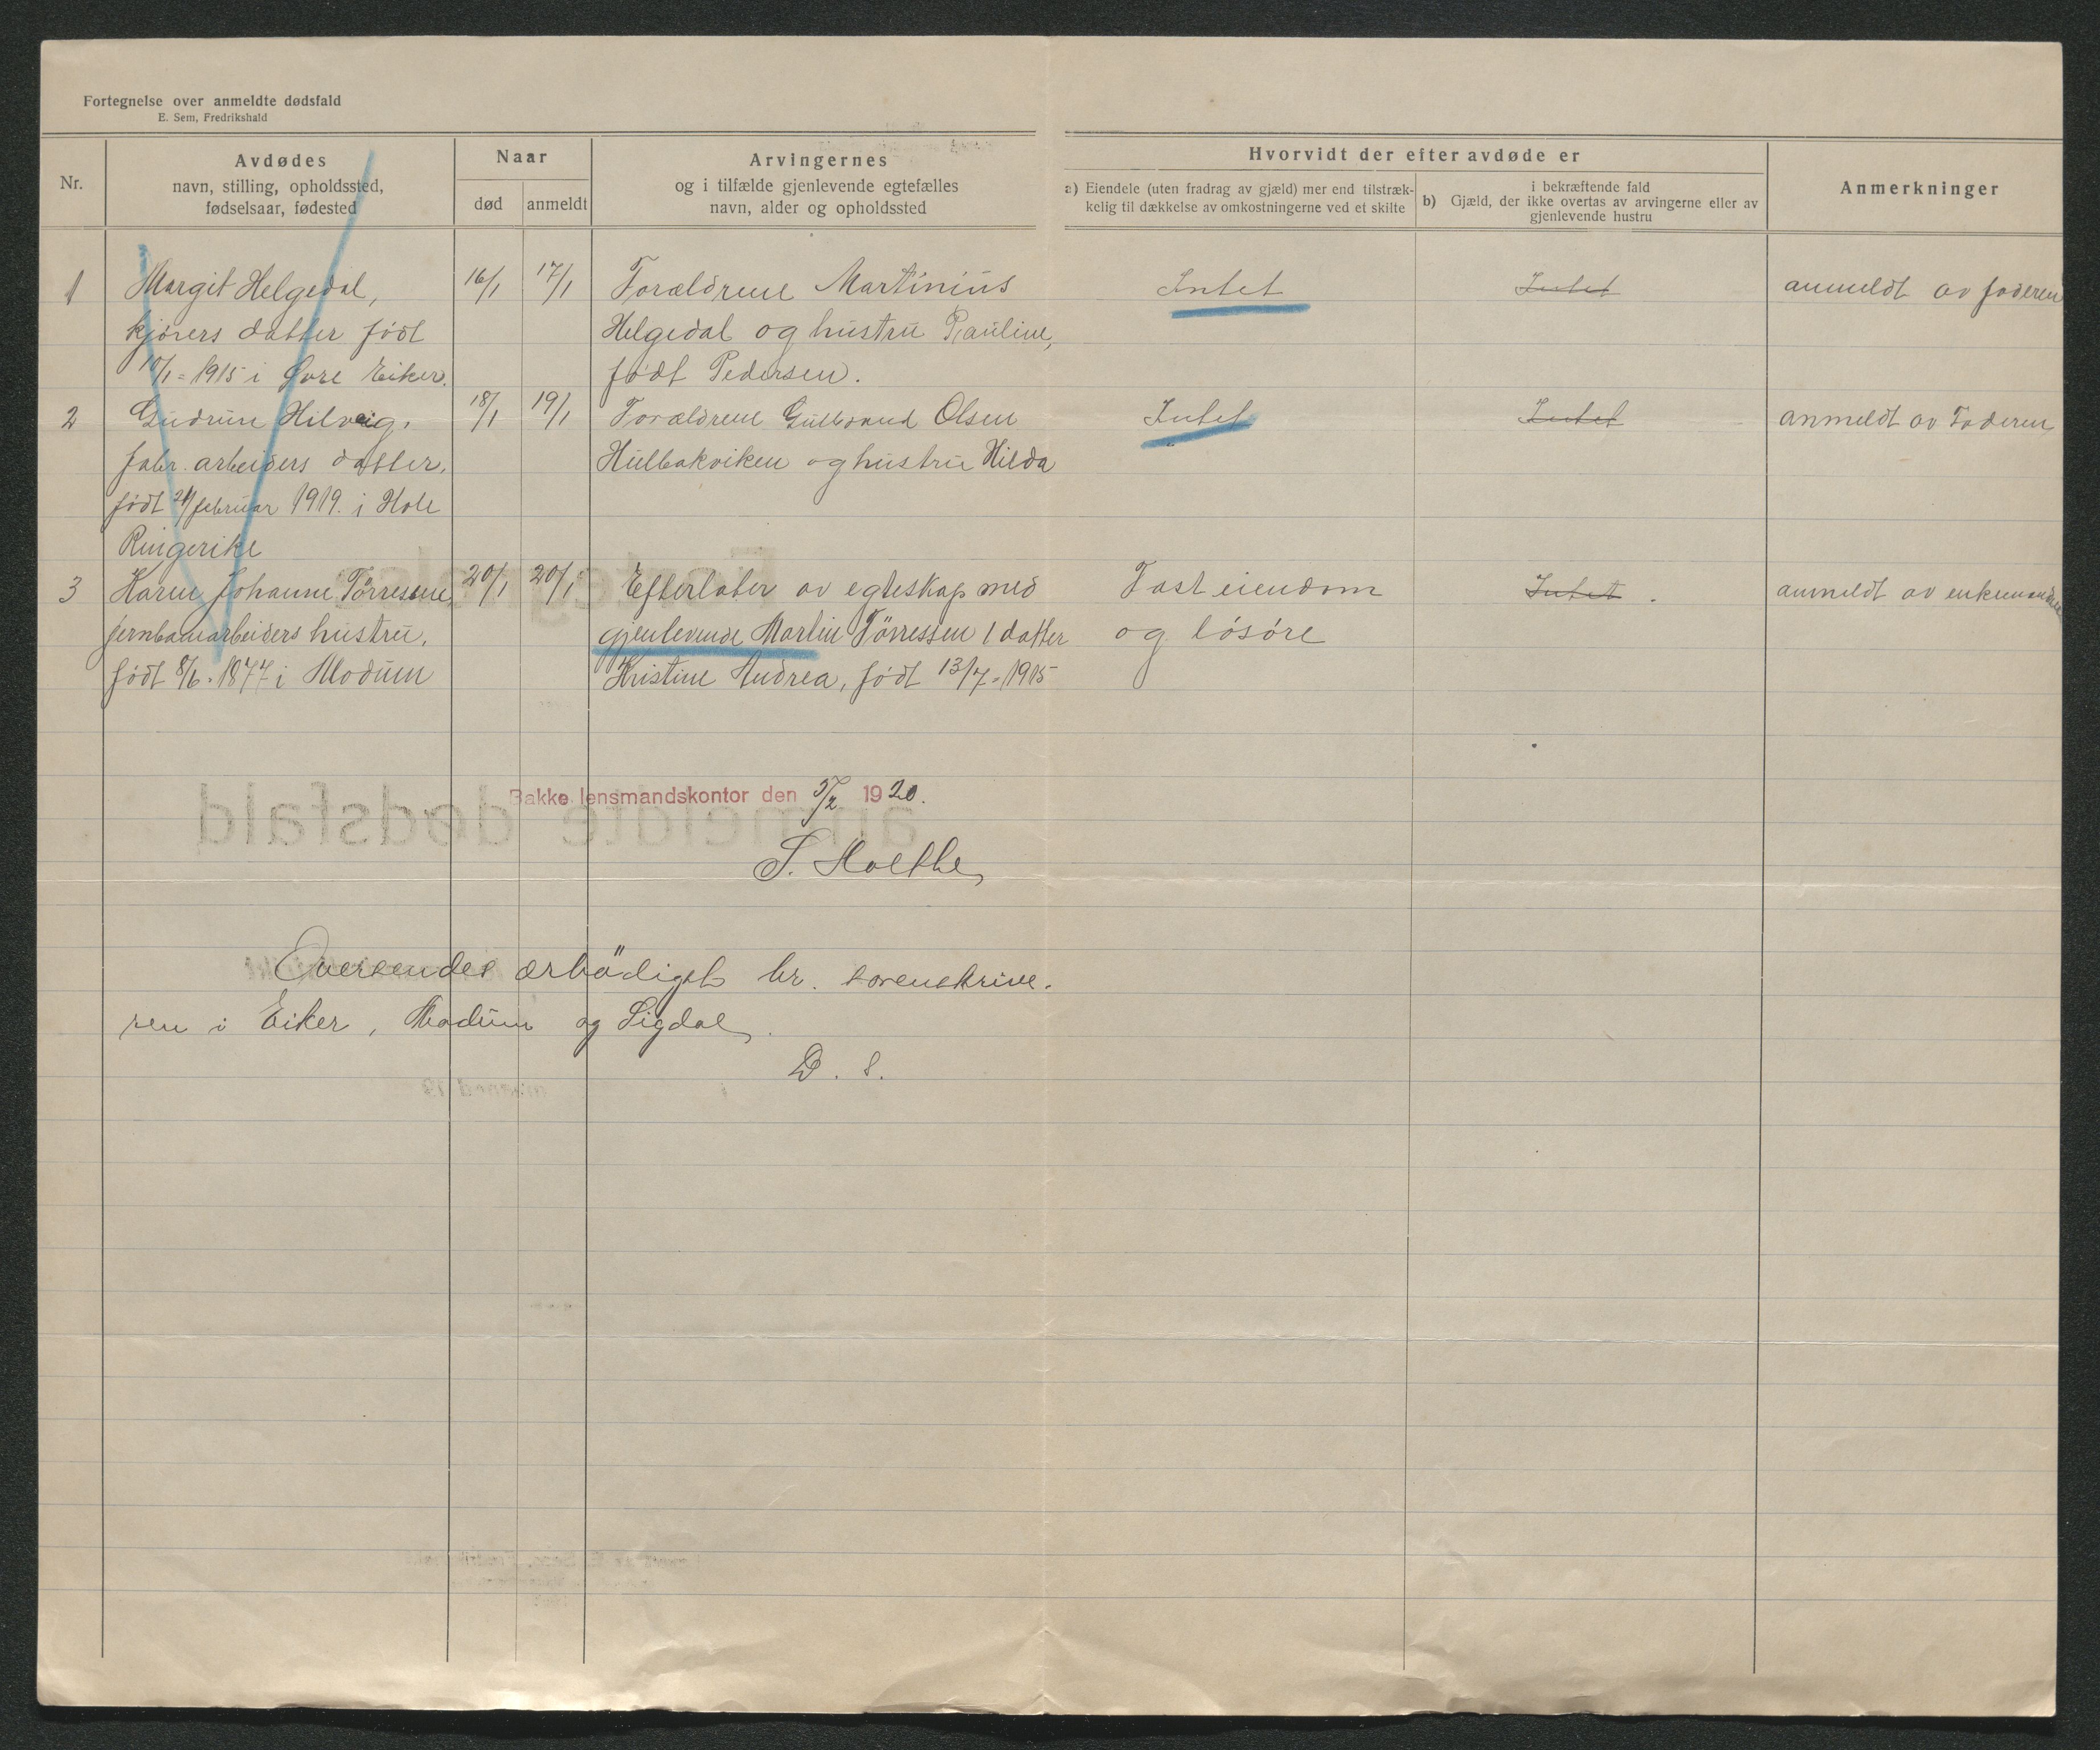 Fortegnelse over anmeldte dødsfald
E. Sem, Fredrikshald
Nr.
Avdødes
navn, stilling, opholdssted,
fødselsaar, fødested
Naar
død
anmeldt
Arvingernes
og i tilfælde gjenlevende egtefælles
navn, alder og opholdssted
Hvorvidt der efter avdøde er
a) Eiendele (uten fradrag av gjæld) mer end tilstræk-
kelig til dækkelse av omkostningerne ved et skifte
b)
i bekræftende fald
Gjæld, der ikke overtas av arvingerne eller av
gjenlevende hustru
Anmerkninger
1
Margit Helgedal,
kjørers datter født
10/1 = 1915 i Øvre Eiker.
16/1
17/1
Forældrene Martinius
Helgedal og hustru Pauline,
født Pedersen.
Intet
Intet
anmeldt av faderen
2
Gudrun Hilveig.
fabr. arbeiders datter,
født 21/februar 1919. i Hole
Ringerike
18/1
19/1
Forældrene Gulbrand Olsen
Hulbakviken og hustru Hilda
Intet
Intet
anmeldt av Faderen
3
Karen Johanne Tørressen,
jernbanearbeiders hustru,
født 8/6. 1877 i Modum
20/1
20/1
Efterlater av egteskap med
gjenlevende Martin Tørressen 1 datter
Kristine Andrea, født 13/7. 1915
Fast eiendom
og løsøre
Intet.
anmeldt av enkemanden
Bakke lensmandskontor den 5/2 1920.
S. Moethe
Oversendes ærbödigst hr. sorenskrive-
ren i Eiker, Modum og Sigdal.
D. S.